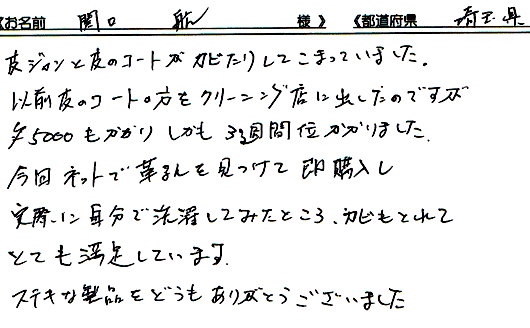 《お名前 関口 航 様》 《都道府県 埼玉県
皮ジャンと皮のコートがカビたりしてこまっていました。
以前皮のコートの方をクリーニング店に出したのですが
¥5000もかかりしかも3週間位かかりました.
今回ネットで革るんを見つけて即購入し
実際に自分で洗濯してみたところ、カビもとれて
とても満足しています.
ステキな製品をどうもありがとうございました